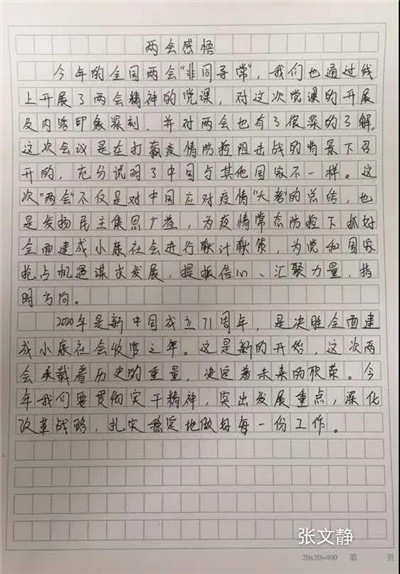 两会感悟
今年的全国两会“非同寻常”，我们也通过线
上开展了两会精神的党课，对这次党课的开展
及内容印象深刻，并对两会也有了很深的了解，
这次会议是在打赢疫情防控阻击战的背景下召
开的，充分说明了中国与其他国家不一样。这
次“两会”不仅是对中国应对疫情“大考”的总结，也
是发扬民主集思广益，为疫情常态防控下抓好
全面建成小康社会进行献计献策，为党和国家
抢占机遇谋求发展，提振信心、汇聚力量，指
明方向。
2020年是新中国成立71周年，是决胜全面建
成小康社会收官之年。这是新的开始，这次两
会承载着历史的重量，决定着未来的收获。今
年我们要贯彻实干精神，突出发展重点，深化
改革战略，扎实稳定地做好每一份工作。
张文静
20x20=400 第 页